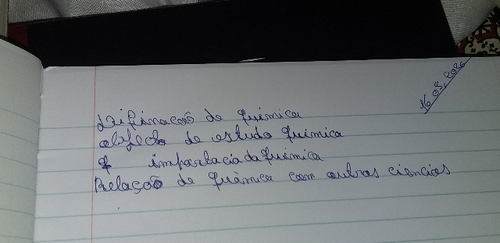 16.03.2026
Difinação de química
objecto de estudo química
importacia da química
Relação de química com outras ciencias